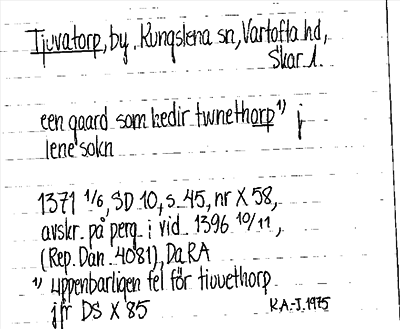 Tjuvatorp, by. Kungslena sn, Vartofta hd,
Skar. l.
een gaard som hedir twnethorp 1) j
lene sokn
1371 1/6, SD 10, s. 45, nr X 58,
avskr. på perg. i vid. 1396 10/11,
(Rep. Dan. 4081), Da RA
1) uppenbarligen fel för tiuuethorp
jfr DS X 85
K.A-J. 1975